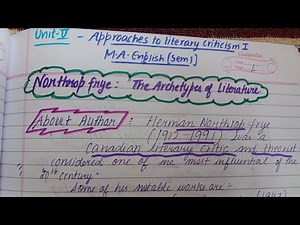 Unit-V - Approaches to literary criticism I
M.A-English (Sem I)
Northrop frye: The Archetypes of Literature
About Author: Herman Northrop frye
(1912-1991) was a
Canadian literary critic and theorist
considered one of the most influential of the
20th century.
Some of his notable works are:-